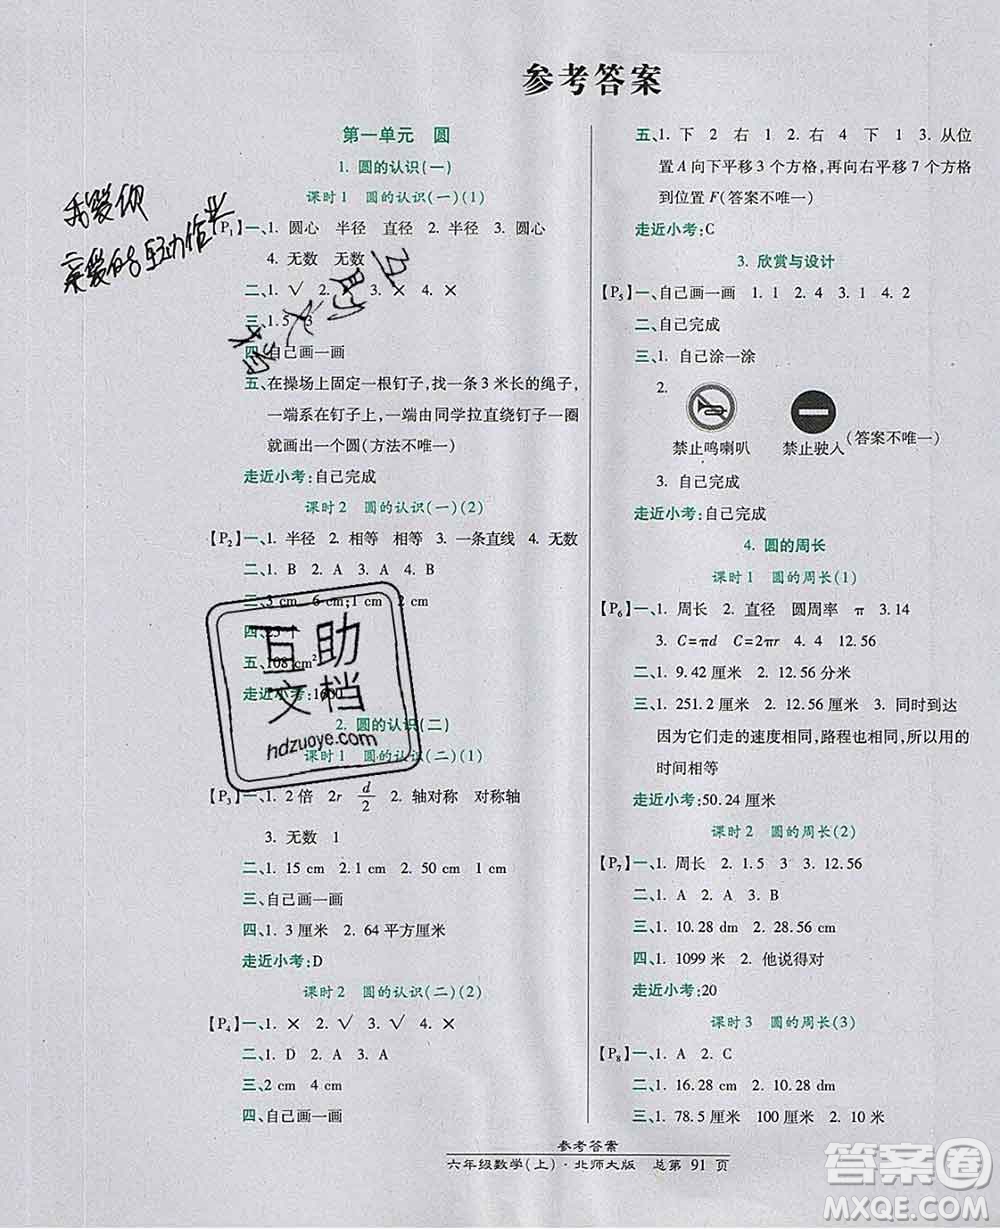 参考答案
第一单元 圆
1. 圆的认识(一)
课时1 圆的认识(一)(1)
【P1】一、1. 圆心 半径 直径 2. 半径 3. 圆心
4. 无数 无数
二、1. √ 2. 3. × 4. ×
三、1.5 3
四、自己画一画
五、在操场上固定一根钉子,找一条3米长的绳子,
一端系在钉子上,一端由同学拉直绕钉子一圈
就画出一个圆(方法不唯一)
走近小考:自己完成
课时2 圆的认识(一)(2)
【P2】一、1. 半径 2. 相等 相等 3. 一条直线 4. 无数
二、1. B 2. A 3. A 4. B
三、3 cm 6 cm;1 cm 2 cm
四、25
五、108 cm²
走近小考:1600
2. 圆的认识(二)
课时1 圆的认识(二)(1)
【P3】一、1. 2倍 2r d/2 2. 轴对称 对称轴
3. 无数 1
二、1. 15 cm 2. 4 cm 2 cm 1 cm
三、自己画一画
四、1. 3厘米 2. 64平方厘米
走近小考:D
课时2 圆的认识(二)(2)
【P4】一、1. × 2. √ 3. √ 4. ×
二、1. D 2. A 3. A 4. C
三、2 cm 4 cm
四、自己画一画
我爱你
亲爱的 作业
互助
文档
互助
文档
hdzuoye.com
五、1. 下 2 右 1 2. 右 4 下 1 3. 从位
置A向下平移3个方格,再向右平移7个方格
到位置F(答案不唯一)
走近小考:C
3. 欣赏与设计
【P5】一、自己画一画 1. 1 2. 4 3. 1 4. 2
二、自己完成
三、1. 自己涂一涂
2.
禁止鸣喇叭 禁止驶人 (答案不唯一)
3. 自己完成
走近小考:自己完成
4. 圆的周长
课时1 圆的周长(1)
【P6】一、1. 周长 2. 直径 圆周率 π 3.14
3. C=πd C=2πr 4. 4 12.56
二、1. 9.42厘米 2. 12.56分米
三、1. 251.2厘米 2. 12.56厘米 3. 同时到达
因为它们走的速度相同,路程也相同,所以用的
时间相等
走近小考:50.24厘米
课时2 圆的周长(2)
【P7】一、1. 周长 2. 1.5 3 3. 12.56
二、1. A 2. A 3. B
三、1. 10.28 dm 2. 28.56 cm
四、1. 1099米 2. 他说得对
走近小考:20
课时3 圆的周长(3)
【P8】一、1. A 2. C
二、1. 16.28 cm 2. 12.56 cm
三、1. 78.5厘米 100厘米 2. 10米
参考答案
六年级数学(上)·北师大版 总第 91 页
答案圈
MXQE.COM